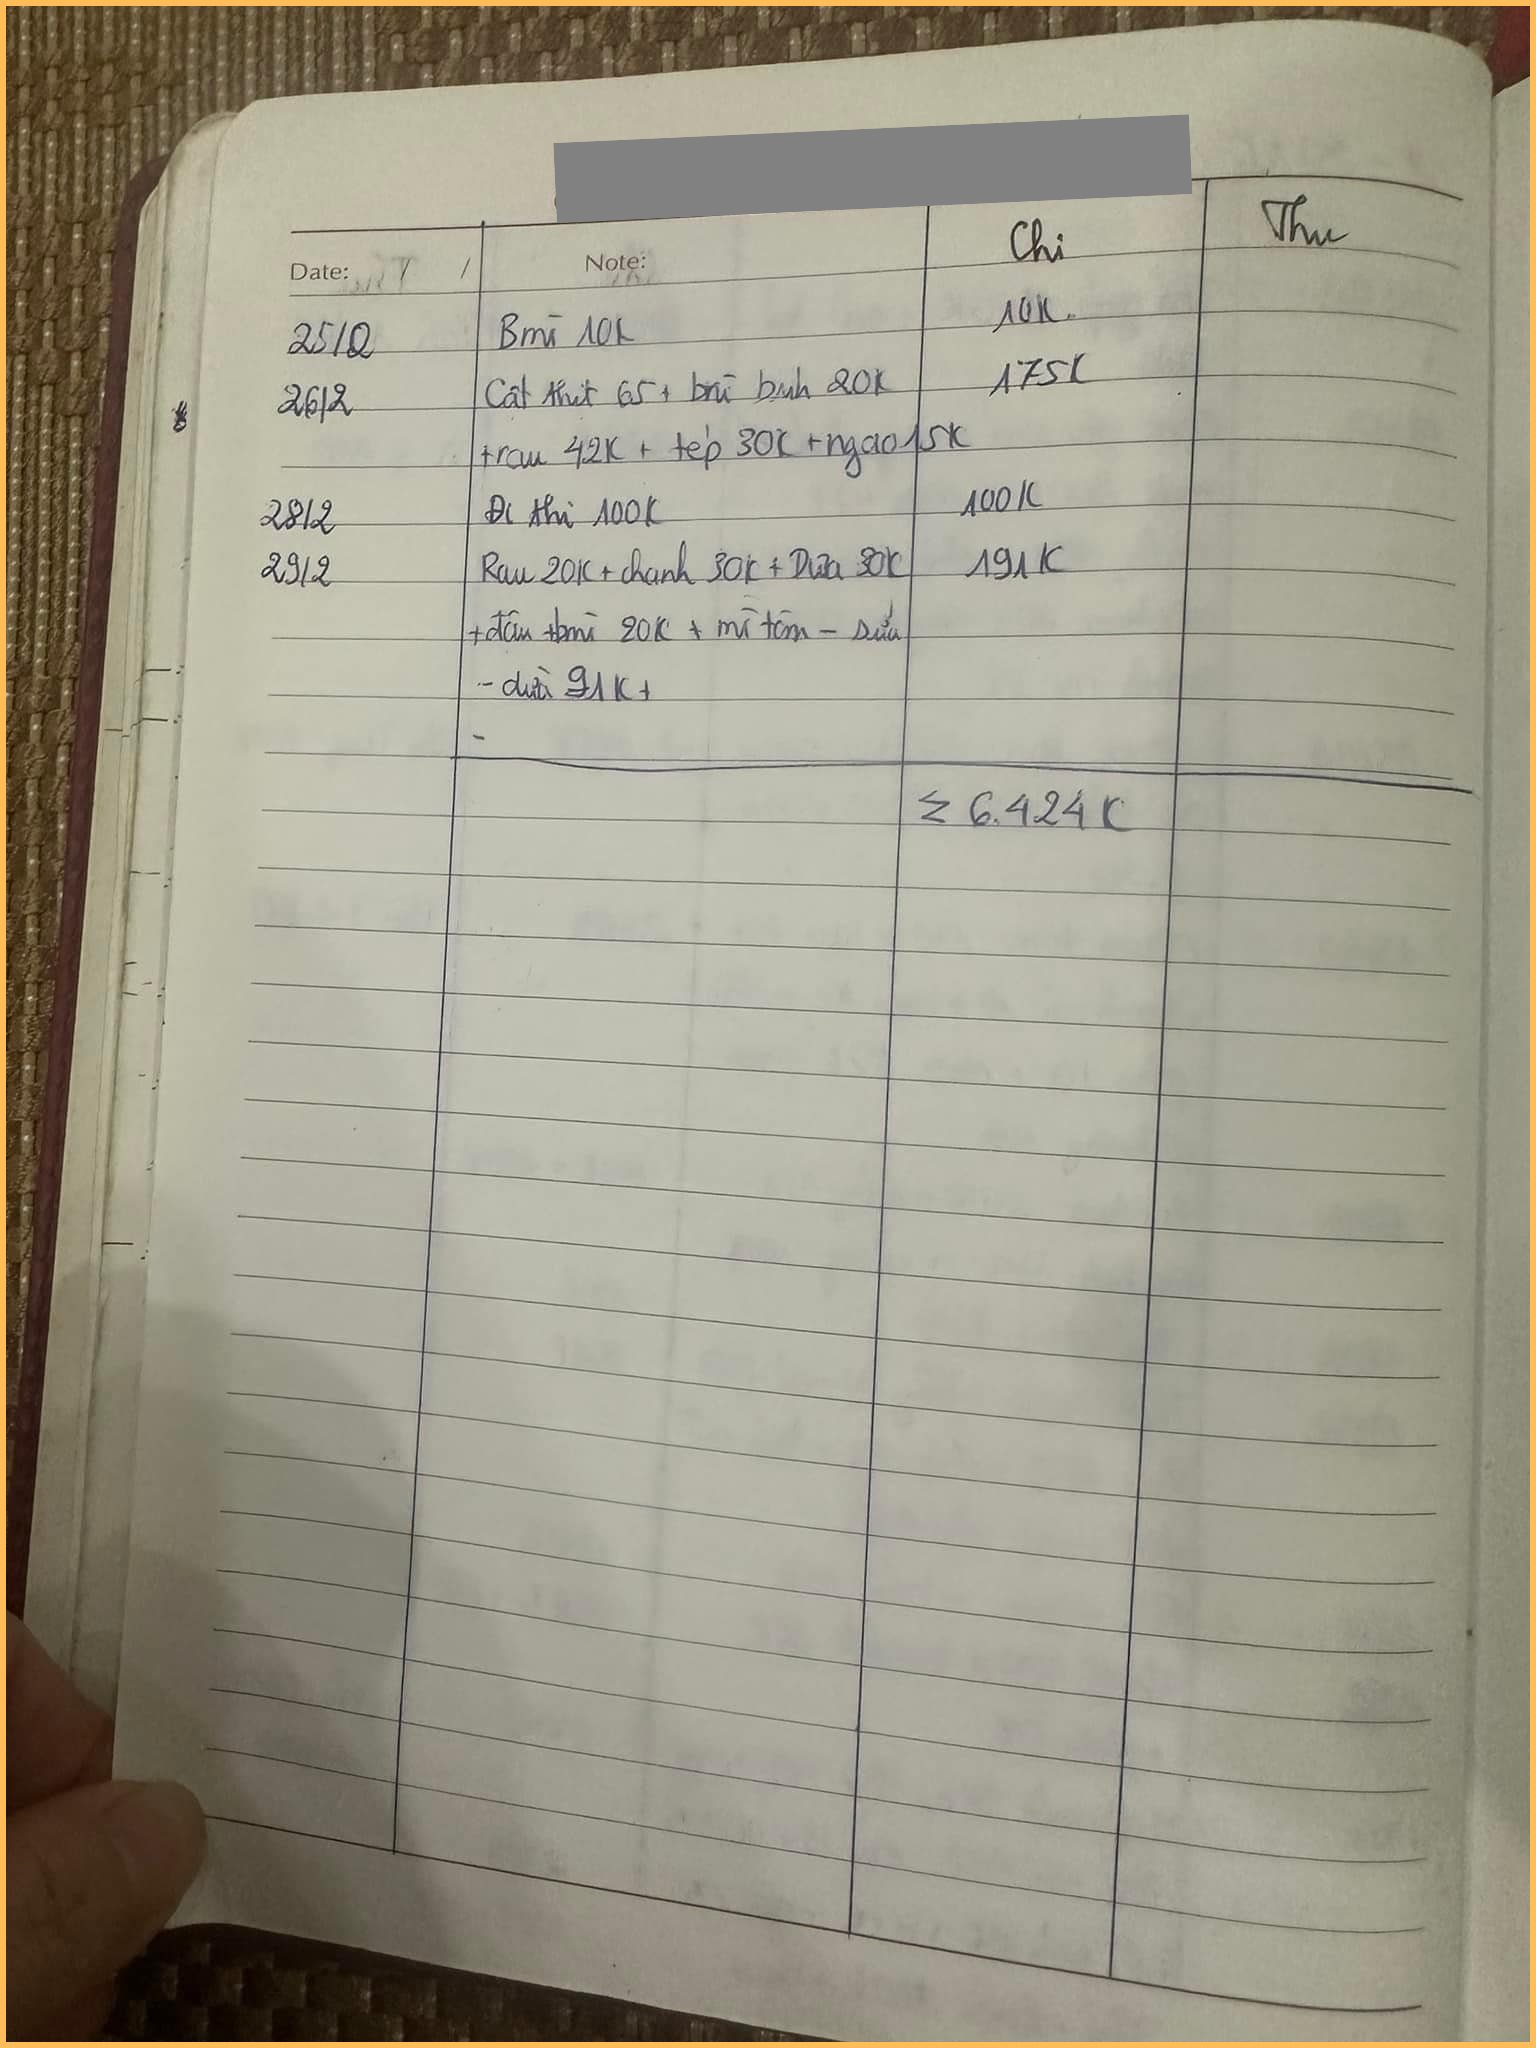 Chi Thu
Date: / / Note:
25/2 Bmì 10K 10K.
26/2 Cát thịt 65 + bmì bình 20K 175K
+rau 42K + tép 30K + ngao 15K
28/2 Đi thi 100K 100K
29/2 Rau 20K + chanh 30K + Dưa 30K 191K
+ đậu + bmì 20K + mì tôm - sữa
- dừa 91K +
-
Σ 6.424K